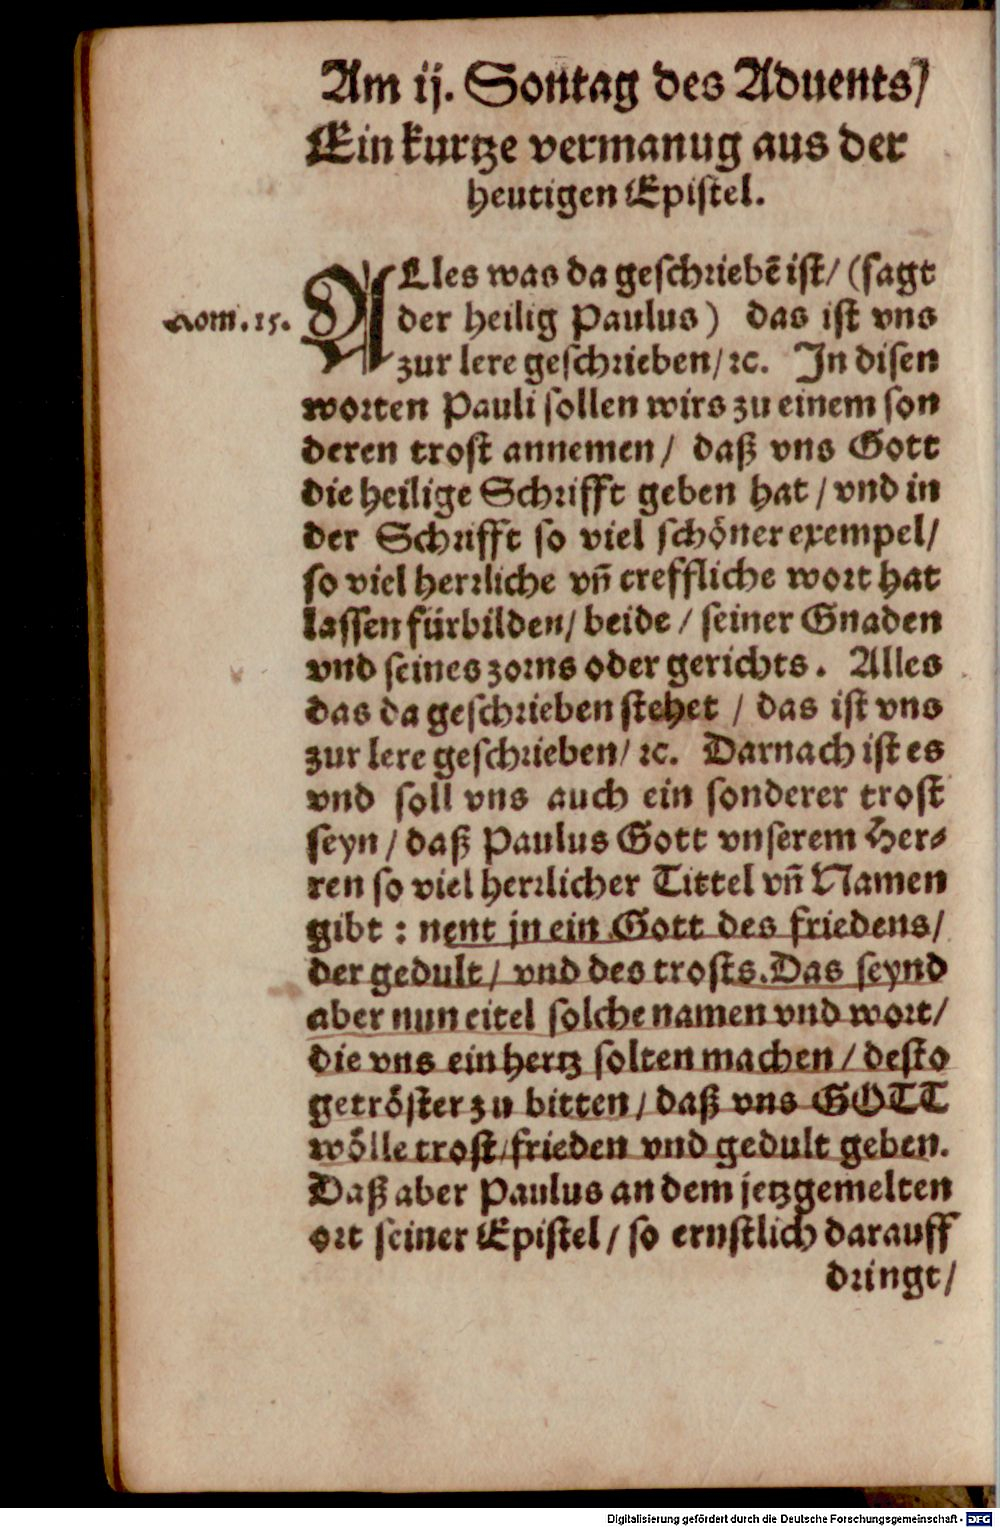 Am ij. Sontag des Aduents/
Ein kurtze vermanug aus der
heutigen Epistel.
ALles was da geschriebē ist/ (sagt
Rom. 15.
der heilig Paulus) das ist vns
zur lere geschrieben/ ꝛc. In disen
worten Pauli sollen wirs zu einem son
deren trost annemen / daß vns Gott
die heilige Schrifft geben hat / vnd in
der Schrifft so viel schöner exempel/
so viel herrliche vñ treffliche wort hat
lassen fürbilden/ beide / seiner Gnaden
vnd seines zorns oder gerichts. Alles
das da geschrieben stehet / das ist vns
zur lere geschrieben/ ꝛc. Darnach ist es
vnd soll vns auch ein sonderer trost
seyn / daß Paulus Gott vnserem Her⸗
ren so viel herrlicher Tittel vñ Namen
gibt : nent jn ein Gott des friedens/
der gedult / vnd des trosts. Das seynd
aber nun eitel solche namen vnd wort/
die vns ein hertz solten machen / desto
getröster zu bitten / daß vns GOTT
wölle trost/ frieden vnd gedult geben.
Daß aber Paulus an dem jetzgemelten
ort seiner Epistel / so ernstlich darauff
dringt/
Digitalisierung gefördert durch die Deutsche Forschungsgemeinschaft - DFG